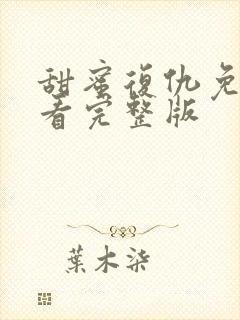 甜蜜復仇免
看完整版
葉木染